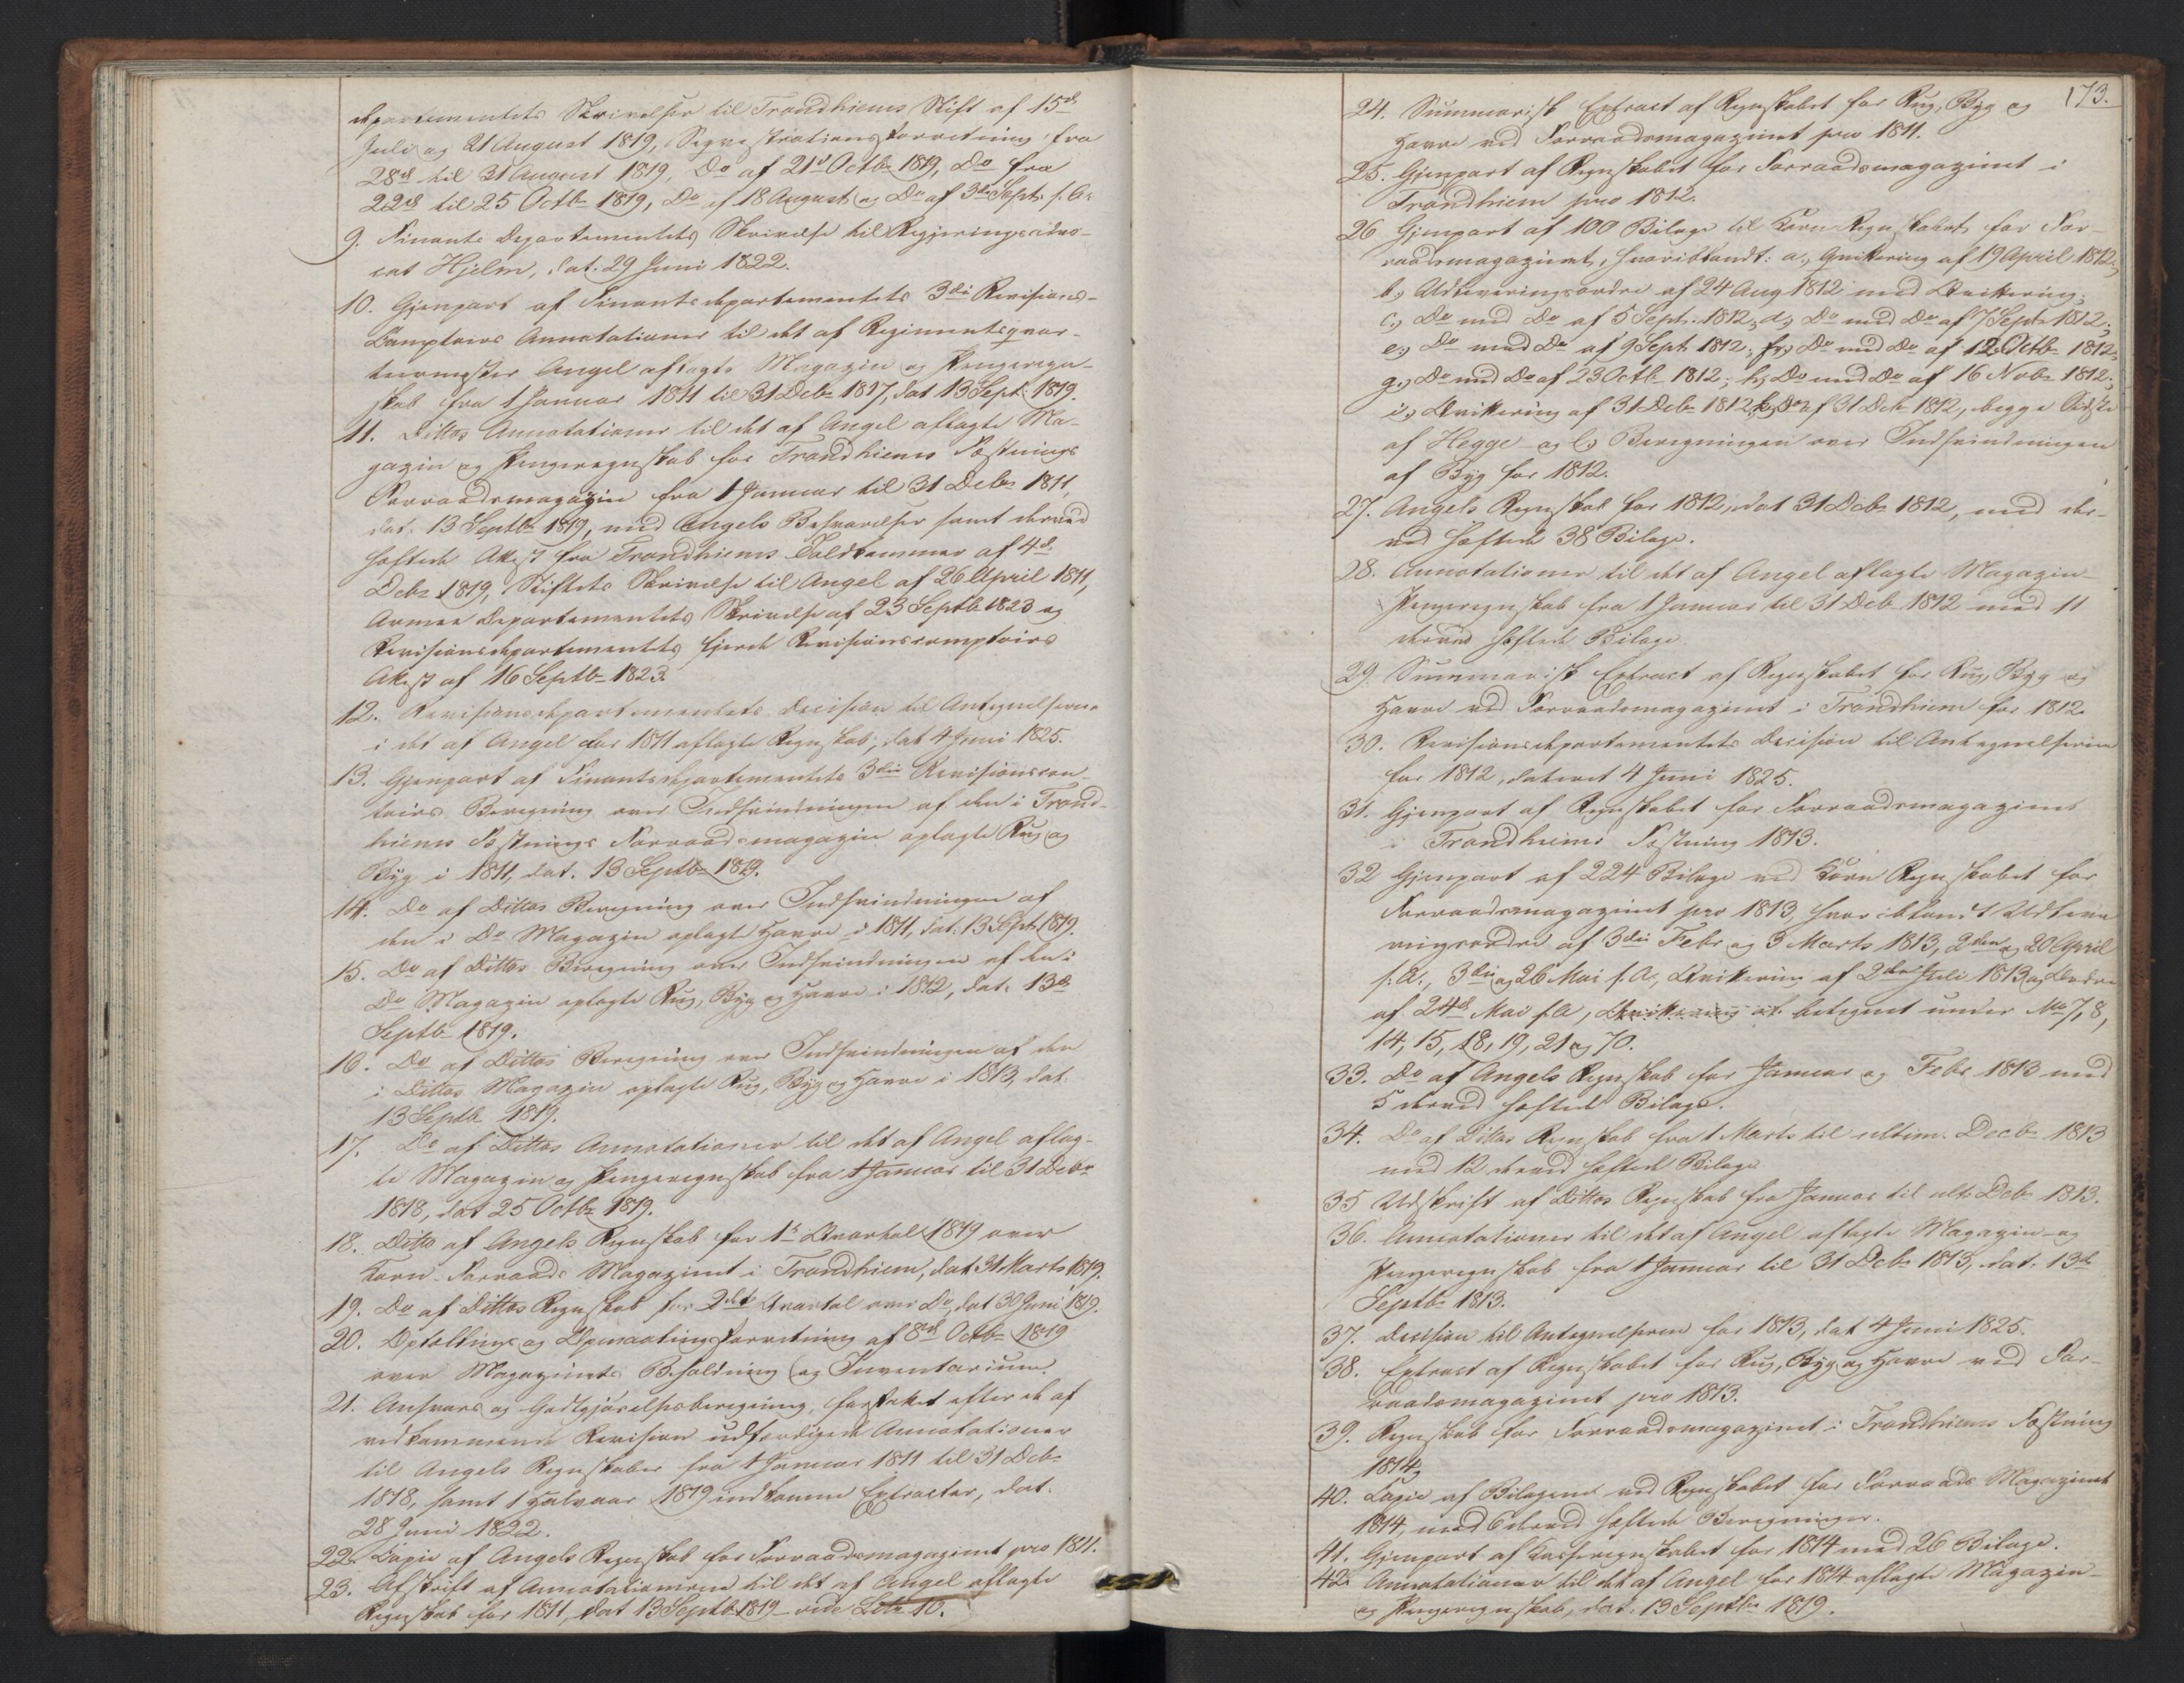 departementets Skrivelser til Trondhiems Stift af 15de
Juli og 21 August 1819, Seqvestrationsforretning fra
28de til 31 August 1819, Do af 21de Octbr 1819, Do fra
22de til 25 Octbr 1819, Do af 18 August og Do af 3die Septr s. A.
9. Finants Departementets Skrivelse til Regjeringsadvo-
cat Hjelm, dat. 29 Juni 1822.
10. Gjenpart af Finantsdepartementets 3die Revisions-
Comptoirs Annotationer til det af Regimentsqvar-
teermester Angel aflagte Magazin og Pengeregn-
skab fra 1 Januar 1811 til 31 Debr 1817, dat 13 Sept. 1819.
11. Dittos Annotationer til det af Angel aflagte Ma-
gazin og Pengeregnskab for Trondhiems Fæstnings
Forraadsmagazin fra 1 Januar til 31 Debr 1811,
dat. 13 Septbr 1819, med Angels Besvarelser samt derved
heftede Akest fra Trondhiems Toldkammer af 4de
Debr 1819, Stiftets Skrivelse til Angel af 26 April 1811,
Armee Departementets Skrivelse af 23 Septb 1823 og
Revisionsdepartementets fjerde Revisionscomptoirs
Akest af 16 Septbr 1823.
12. Revisionsdepartementets Decision til Antegnelserne
i det af Angel for 1811 aflagte Regnskab, dat 4 Juni 1825.
13. Gjenpart af Finantsdepartementets 3die Revisionscon-
toirs Beregning over Indsvindningen af den i Trond-
hiems Fæstnings Forraadsmagazin oplagte Rug og
Byg i 1811, dat. 13 Septbr 1819.
14. Do af Dittos Beregning over Indsvindningen af
den i Do Magazin oplagte Havre i 1811, dat. 13 Septr 1819.
15. Do af Dittos Beregning over Indsvindningen af den i
Do Magazin oplagte Rug, Byg og Havre i 1812, dat. 13de
Septbr 1819.
16. Do af Dittos Beregning over Indsvindningen af den
i Dittos Magazin oplagte Rug, Byg og Havre i 1813, dat.
13 Septb 1819.
17. Do af Dittos Annotationer til det af Angel aflag-
te Magazin og Pengeregnskab fra 1 Januar til 31 Debr
1818, dat 25 Octbr 1819.
18. Ditto af Angels Regnskab for 1ste Qvartal 1819 over
Korn Forraads Magazinet i Trondhiem, dat 31 Marts 1819.
19. Do af Dittos Regnskab for 2det Qvartal over Do, dat 30 Juni 1819.
20. Optællings og Opmaalings Forretning af 8de Octbr 1819
over Magazinets Beholdning og Inventarium.
21. Ansvars og Godtgjørelsesberegning, forfattet efter de af
vedkommende Revision udfærdigede Annotationer
til Angels Regnskaber fra 1 Januar 1811 til 31 Debr
1818, samt 1 Halvaar 1819 indkomne Extracter, dat.
28 Juni 1822.
22. Copie af Angels Regnskab for Forraadsmagazinet pro 1811.
23. Afskrift af Annotationerne til det af Angel aflagte
Regnskab for 1811, dat 13 Septb. 1819 - vide Litr 10.
173.
24. Summarisk Extract af Regnskabet for Rug, Byg og
Havre ved Forraadsmagazinet pro 1811.
25. Gjenpart af Regnskabet for Forraadsmagazinet i
Trondhiem pro 1812.
26 Gjenpart af 100 Bilage til Korn Regnskabet for For-
raadsmagazinet, hvoriblandt: a.) Qvittering af 19 April 1812;
b.) Udleveringsordre af 24 Aug 1812 med Qvittering;
c.) Do med Do af 5 Septr 1812; d.) Do med Do af 7 Septr 1812;
e.) Do med Do af 9 Sept 1812; f.) Do med Do af 12 Octbr 1812;
g.) Do med Do af 23 Octb 1812; h.) Do med Do af 16 Nobr 1812;
i.) Qvittering af 31 Debr 1812, k.) Do af 31 Debr 1812, begge
af Hegge og l.) Beregningen over Indsvindningen
af Byg for 1812.
27. Angels Regnskab for 1812, dat 31 Debr 1812, med der-
ved heftede 38 Bilage.
28. Annotationer til det af Angel aflagte Magazin-
Pengeregnskab fra 1 Januar til 31 Deb 1812 med 11
derved heftede Bilage
29. Summarisk Extract af Regnskabet for Rug, Byg og
Havre ved Forraadsmagazinet i Trondhiem for 1812.
30. Revisionsdepartementets Decision til Antegnelserne
for 1812, dateret 4 Juni 1825.
31. Gjenpart af Regnskabet for Forraadsmagazinet
i Trondhiems Fæstning 1813.
32 Gjenpart af 224 Bilage ved Korn Regnskabet for
Forraadsmagazinet pro 1813, hvoriblandt Udleve-
ringsordre af 3die Febr og 3 Marts 1813, 2den og 20 April
s. A., 3die og 26 Mai s. A., Qvittering af 2den Juli 1813 og Ordre
af 24de Mai s. A, Qvittering af betegnet under No 7, 8,
14, 15, 18, 19, 21 og 70.
33. Do af Angels Regnskab for Januar og Febr 1813 med
5 derved heftede Bilage.
34. Do af Dittos Regnskab fra 1 Marts til ultim. Decbr 1813
med 12 derved heftede Bilage
35 Udskrift af Dittos Regnskab fra Januar til ult. Debr 1813.
36. Annotationer til det af Angel aflagte Magazin- og
Pengeregnskab fra 1 Januar til 31 Debr 1813, dat. 13de
Septbr 1813.
37. Decision til Antegnelserne for 1813, dat 4 Juni 1825.
38. Extract af Regnskabet for Rug, Byg og Havre ved For-
raadsmagazinet pro 1813.
39. Regnskab for Forraadsmagazinet i Trondhiems Fæstning
1814,
40. Copie af Bilagene ved Regnskabet for Forraads Magazinet
1814, med 6 derved heftede Beregninger.
41. Gjenpart af Casseregnskabet for 1814 med 26 Bilage.
42. Annotationer til det af Angel for 1814 aflagte Magazin-
og Pengeregnskab, dat. 13 Septbr 1819.